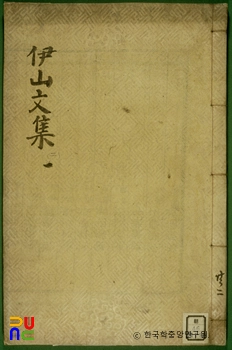 伊山文集
一
共二
© 한국학중앙연구원